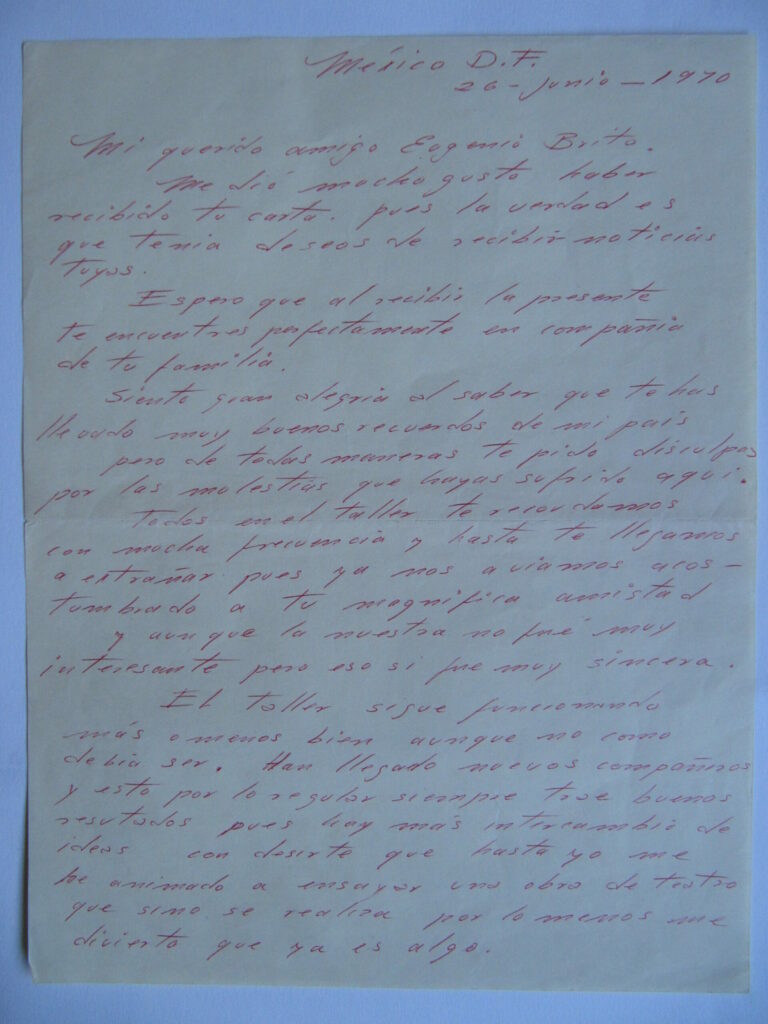 México D.F.
26-Junio-1970
Mi querido amigo Eugenio Brito.
Me dió mucho gusto haber
recibido tu carta. pues la verdad es
que tenia deseos de recibir noticias
tuyas.
Espero que al recibir la presente
te encuentres perfectamente en compañia
de tu familia.
Siento gran alegria al saber que te has
llevado muy buenos recuerdos de mi país
pero de todas maneras te pido disculpas
por las molestias que hayas sufrido aqui.
Todos en el taller te recordamos
con mucha frecuencia y hasta te llegamos
a estrañar pues ya nos aviamos acos-
tumbrado a tu magnifica amistad
y aunque la nuestra no fué muy
interesante pero eso si fue muy sincera.
El taller sigue funcionando
más o menos bien aunque no como
debia ser. Han llegado nuevos compañeros
y esto por lo regular siempre trae buenos
resutados pues hay más intercambio de
ideas con desirte que hasta yo me
he animado a ensayar una obra de teatro
que sino se realiza por lo menos me
divierto que ya es algo.